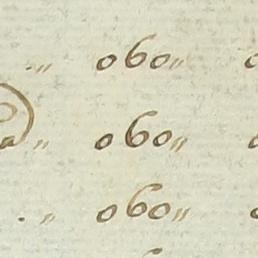 „ 060„
a „ 060„
. „ 060„